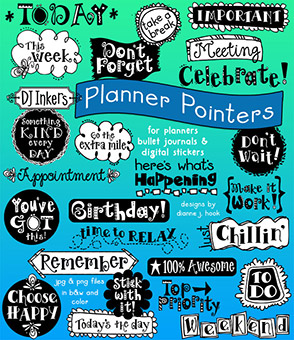 ★ TODAY ★
take a break
IMPORTANT
This week
Don't
Forget
Meeting
Celebrate!
DJ Inkers
Planner Pointers
Something
KIND
every
DAY
Go the
extra mile
for planners
bullet journals &
digital stickers
Don't
Wait!
Appointment
here's what's
Happening
Make it
WORK!
You've
GOT
this!
Birthday!
designs by
dianne j. hook
time to RELAX
just
Chillin'
Remember
★100% Awesome
TO
DO
jpg & png files
in b&w and
color
Stick
with it!
Top
Priority
Choose
HAPPY
Today's the day
Weekend